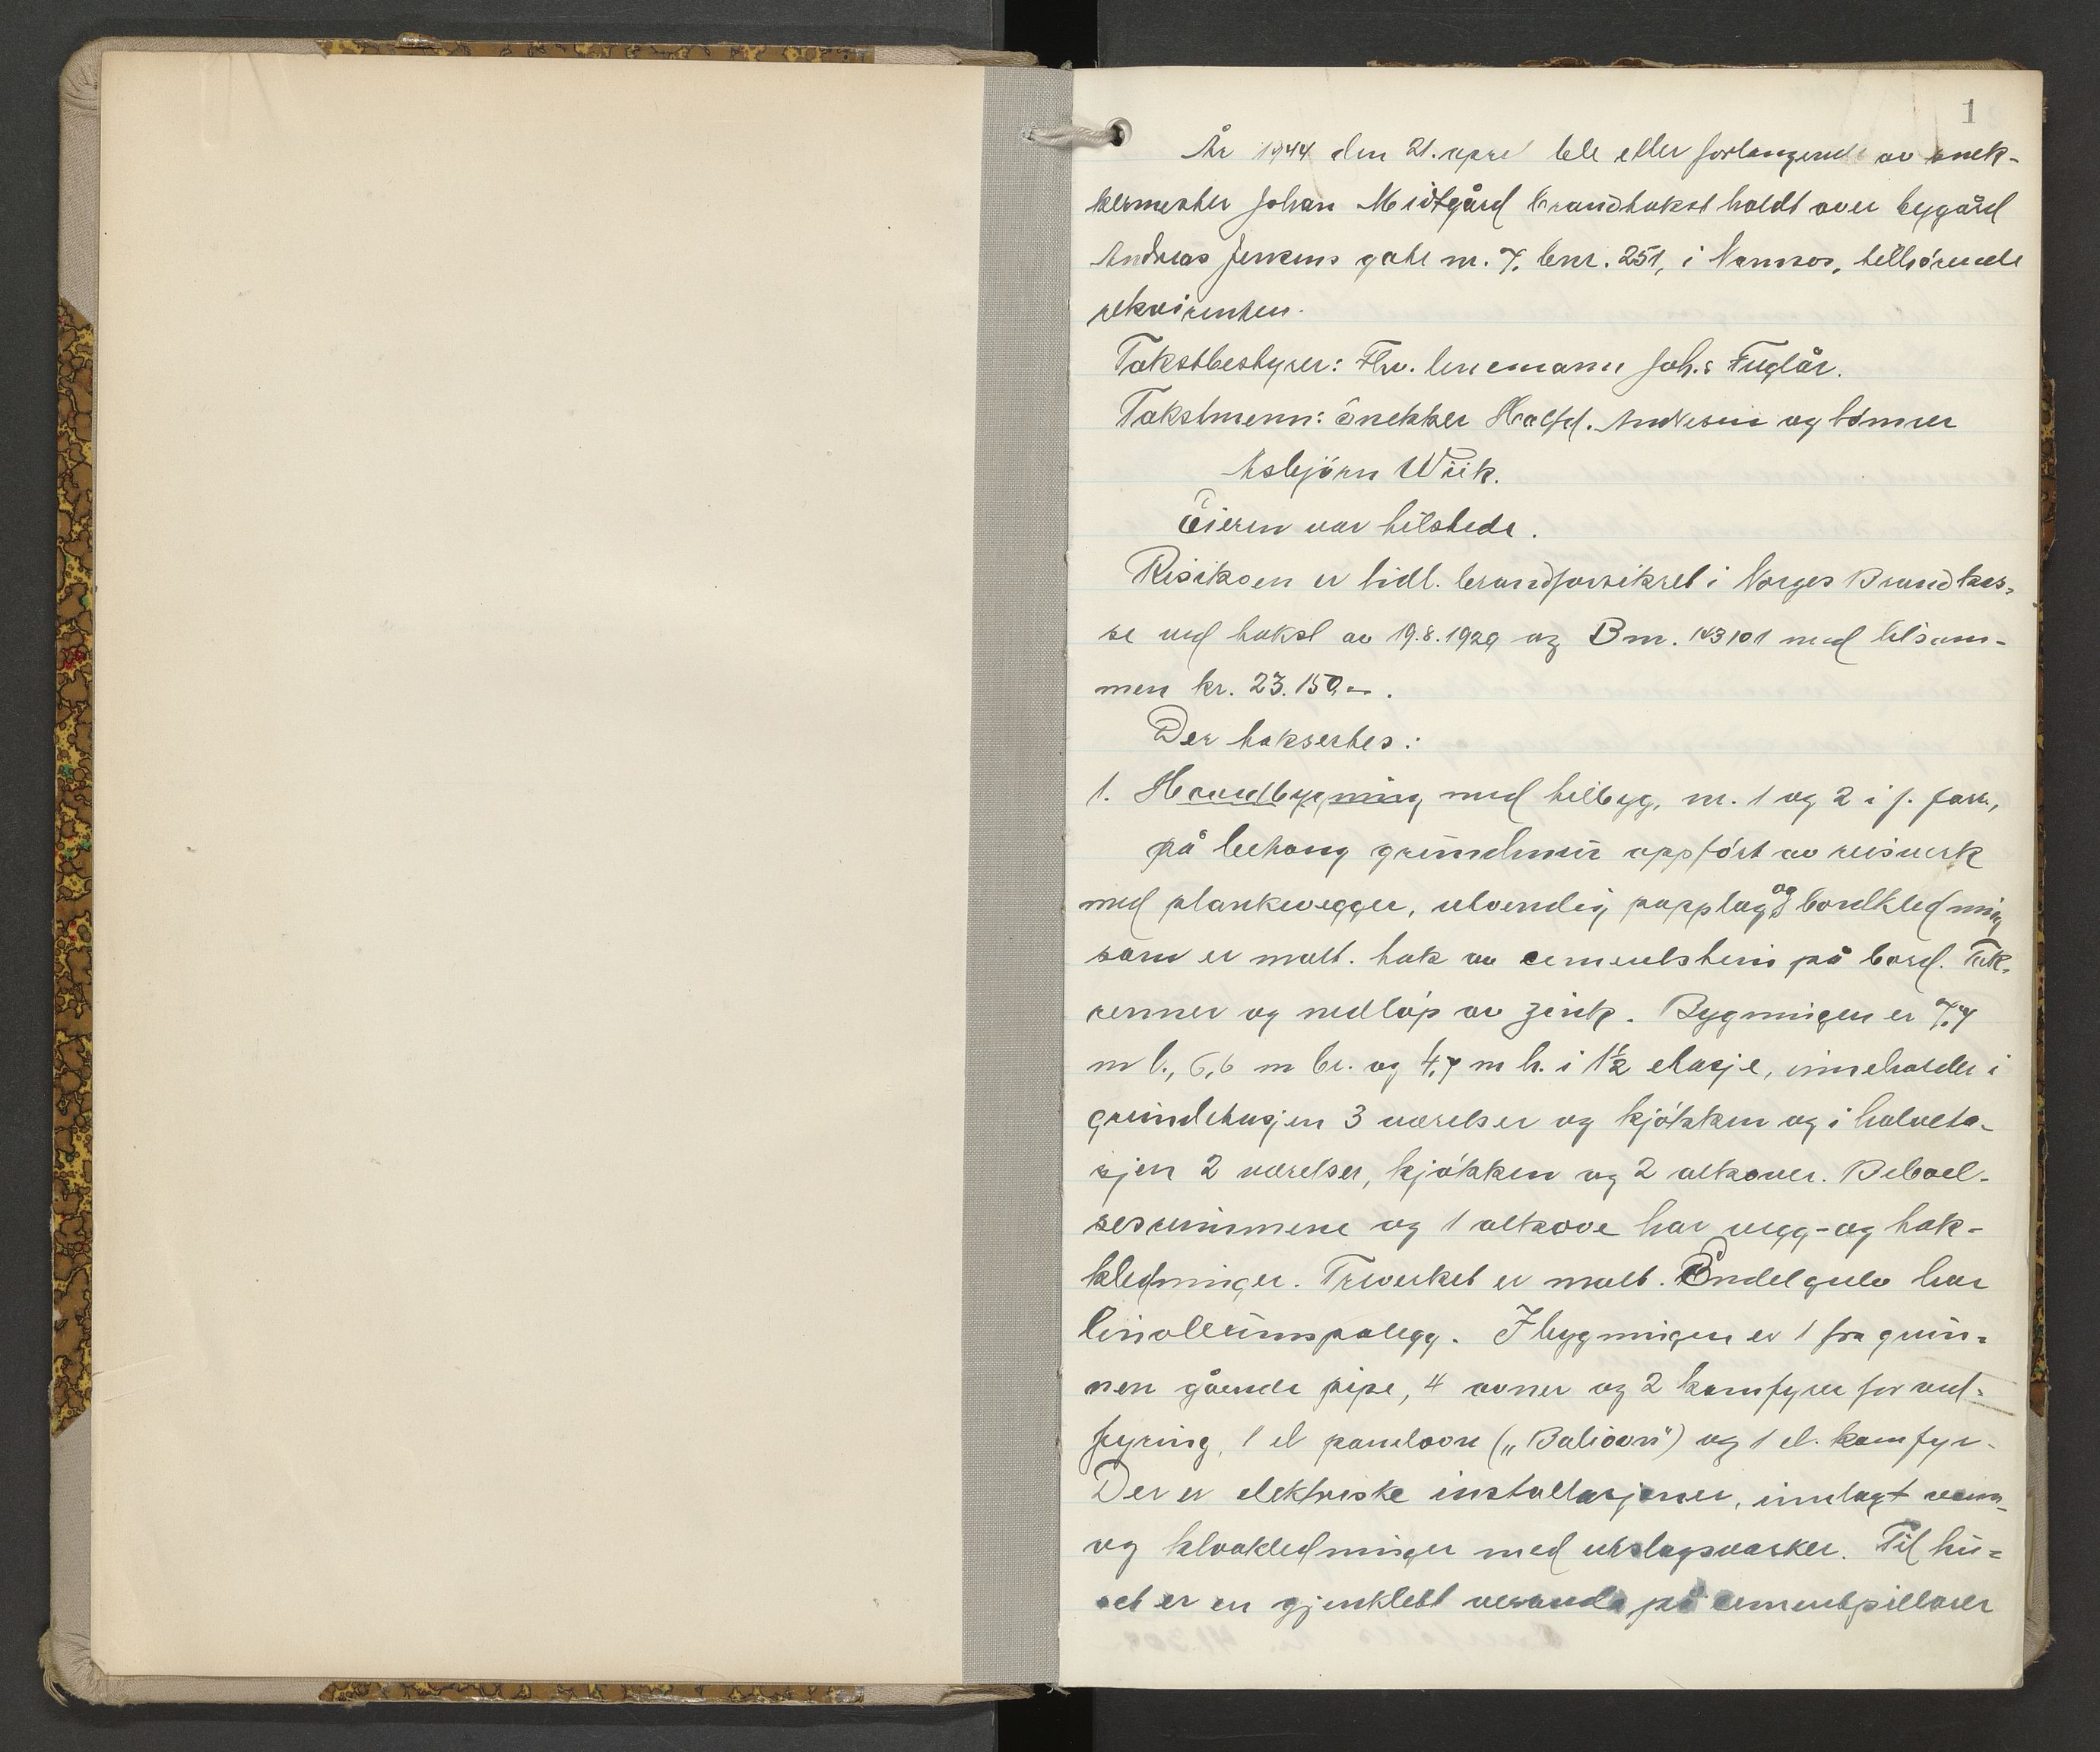 1
År 1944 den 21. april ble etter forlangende av snek-
kermester Johan Midtgård brandtakst holdt over bygård
Andreas Jensens gate nr. 7, bnr. 251, i Namsos, tilhörende
rekvirenten.
Takstbestyrer: Fhv. lensmann Joh.s Fuglår.
Takstmenn: Snekker Halfd. Andresen og tömrer
Asbjörn Wiik.
Eieren var tilstede.
Risikoen er tidl. brandforsikret i Norges Brandkas-
se ved takst av 19.8.1929 og B nr. 143101 med tilsam-
men kr. 23.150,-.
Der taksertes:
1. Hovedbygning med tilbyg, nr. 1 og 2 i f. forr.,
på betong grundmur oppfört av reisverk
med plankevegger, utvendig papplag og bordkledning
som er malt. tak av cementsten på bord. Tak-
renner og nedlöp av zink. Bygningen er 7,7
m l., 6,6 m br. og 4,7 m h. i 1½ etasje, inneholder i
grundetasjen 3 værelser og kjökken og i halveta-
sjen 2 værelser, kjökken og 2 alkover. Beboel-
sesrummene og 1 alkove har vegg- og tak-
kledninger. Treverket er malt. Endel gulv har
linoleumspålegg. I bygningen er 1 fra grun-
nen gående pipe, 4 ovner og 2 komfyrer for ved-
fyring, 1 el panelovn („Baliovn") og 1 el. komfyr.
Der er elektriske installasjoner, innlagt vann-
og kloakledninger med utslagsvasker. Til hu-
set er en gjenkledt veranda på cementpillarer